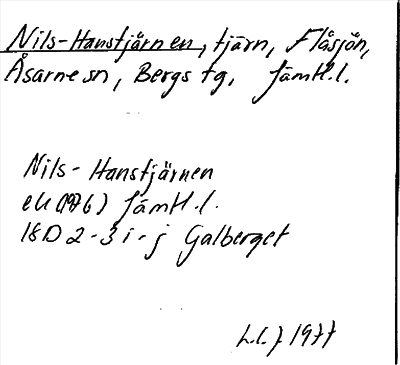 Nils-Hanstjärnen, tjärn, Flåsjön,
Åsarne sn, Bergs tg, Jämtl.l.
Nils-Hanstjärnen
ek (1976) Jämtl.l.
18D 2-3 i-j Galberget
1977